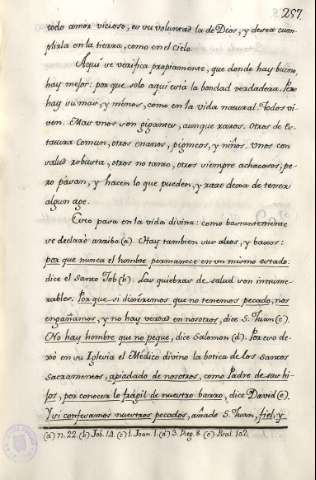 257
todo amor vicioso, es su voluntad la de Dios, y desea cum-
plirla en la tierra, como en el cielo.
Aqui se verifica propiamente, que donde hay bueno,
hay mejor: por que solo aqui está la bondad verdadera. Pero
hay su mas, y menos, como en la vida natural. Todos vi-
ven. Mas unos son gigantes, aunque raros. Otros de es-
tatura comun, otros enanos, pigmeos, y niños. Unos con
salud robusta, otros no tanto, otros siempre achacosos, pe-
ro pasan, y hacen lo que pueden, y raro dexa de tener
algun age.
Esto pasa en la vida divina: como bastantemente
se declaró arriba (a). Hay tambien sus altos, y baxos:
por que nunca el hombre permanece en un mismo estado,
dice el Santo Job (b). Las quiebras de salud son innume-
rables. Por que si dixeremos que no tenemos pecado, nos
engañamos, y no hay verdad en nosotros, dice S. Juan (c).
No hay hombre que no peque, dice Salomon (d). Por eso de-
xó en su Iglesia el Médico divino la botica de los santos
sacramentos, apiadado de nosotros, como Padre de sus hi-
jos, por conocer lo frágil de nuestro barro, dice David (e).
Y si confesamos nuestros pecados, añade S. Juan, fiel, y
(a) n. 22. (b) Job. 14. (c) 1. Joan. 1. (d) 3. Reg. 8. (e) Psal. 102.